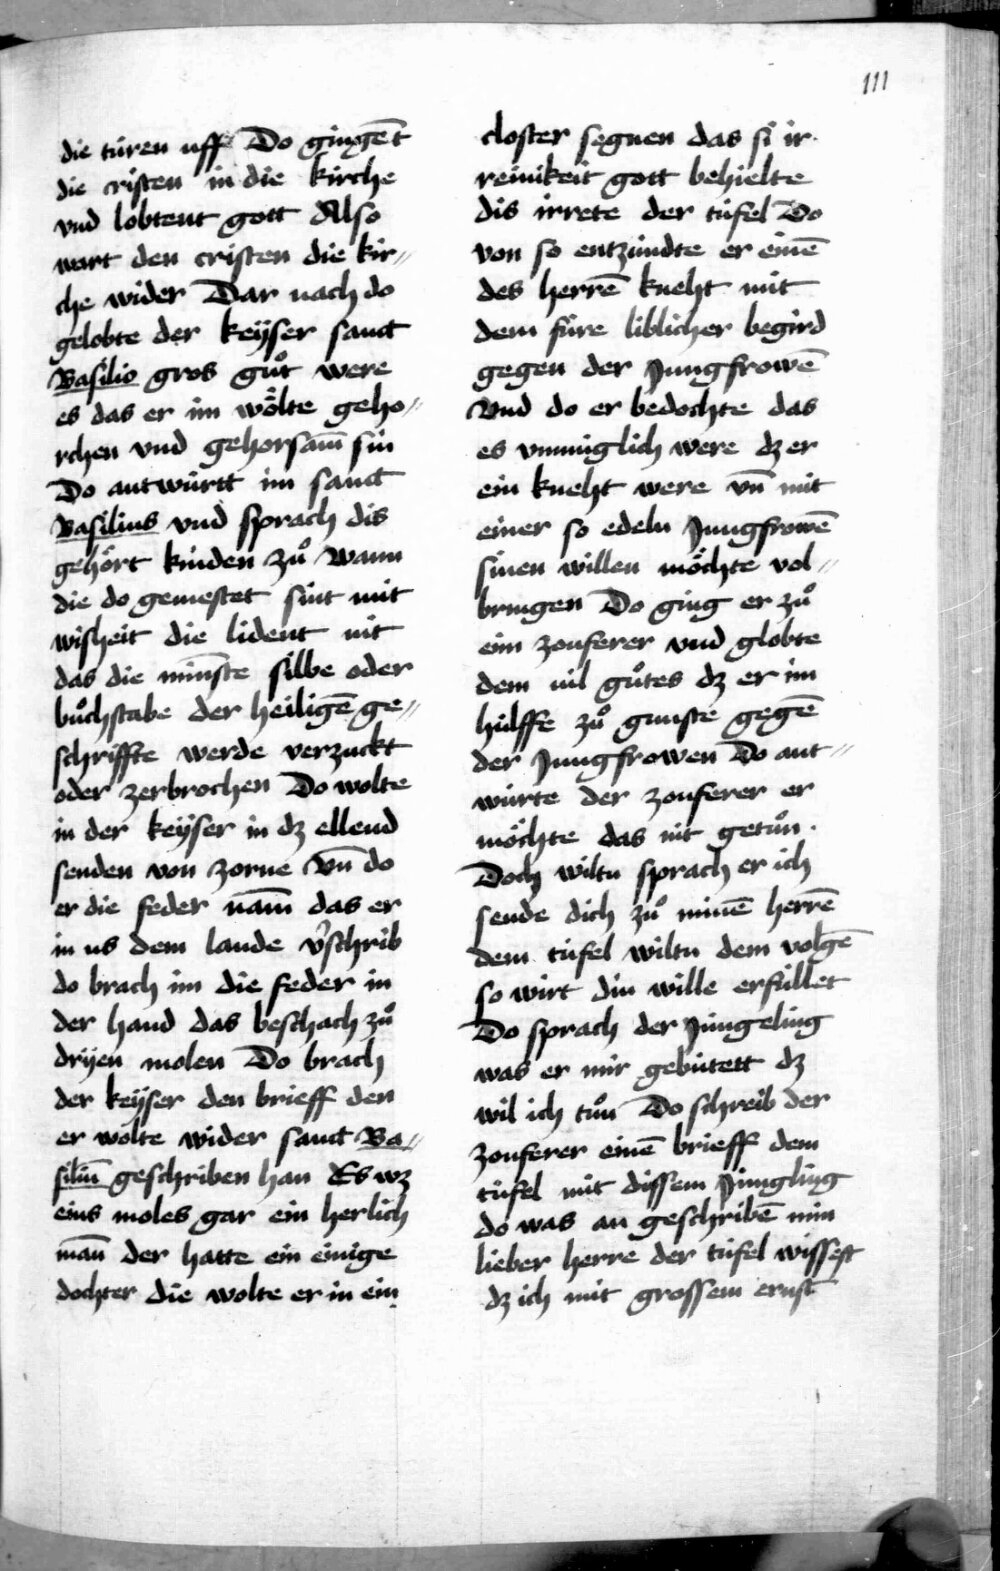 111
die türen uff Do gingēt
die cristen in die kirche
vnd lobtent gott Also
wart den cristen die kir〃
che wider Dar nach do
gelobte der keÿser sanct
Basilio gros gůt were
es das er im wölte geho〃
rchen vnd gehorsam̄ sin
Do antwürtt im sanct
Basilius vnd sprach dis
gehört kinden zů Wann
die do gemestet sint mit
wisheit die lident nit
das die min̄ste silbe oder
bůchstabe der heiligē ge〃
schriffte werde verzuckt
oder zerbrochen Do wolte
in der keÿser in dz ellend
senden von zorne Vn̄ do
er die feder nam̄ das er
in us dem lande v̓schrib
do brach im die feder in
der hand das beschach zů
drÿen molen Do brach
der keÿser den brieff den
er wolte wider sanct Ba〃
siliū geschriben han Es wz
eins moles gar ein herlich
man̄ der hatte ein einige
dochter die wolte er in ein
closter segnen das si ir
reinikeit gott behielte
dis irrete der tüfel Do
von so entzündte er einē
des herrē kneht mit
dem füre liblicher begird
gegen der Jungfrowē
Vnd do er bedochte das
es vnmüglich were dz er
ein kneht were vn̄ mit
einer so edeln Jungfrowē
sinen willen möchte vol〃
bringen Do ging er zů
eim zouferer vnd globte
dem vil gůtes dz er im
hülffe zů gunste gegē
der Jungfrowen Do ant〃
würte der zouferer er
möchte das nit getůn.
Doch wiltu sprach er ich
sende dich zů minē herrē
dem tüfel wiltu dem volgē
so wirt din wille erfüllet
Do sprach der Jüngeling
was er mir gebütett dz
wil ich tůn Do schreib der
zouferer einē brieff dem
tüfel mit dissem Jüngling
do was an geschribē min
lieber herre der tüfel wissest
dz ich mit grossem ernst